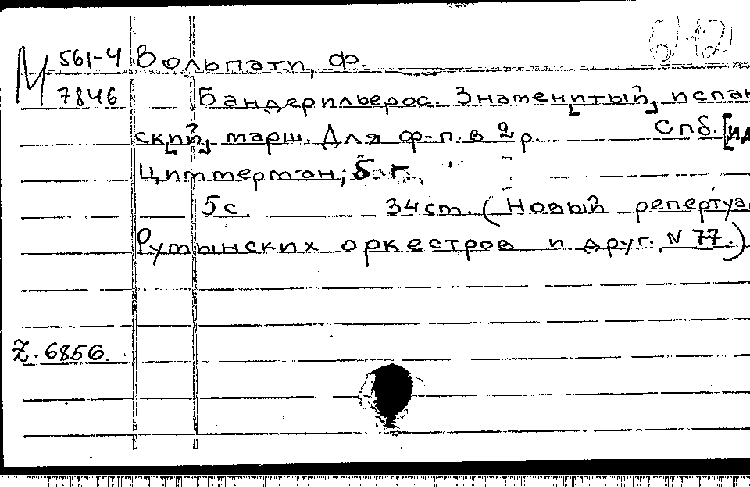 М 561-4 Вольпати, Ф.
7846 Бандерильерос. Знамен[итый] испан
ск[ий] марш. Для ф-п. в 2 р. Спб. [
Циммерман, б. г.
5 с. 34 cm. (Новый репертуа
Румынских оркестров и друг. N 77.)
Z. 6856.